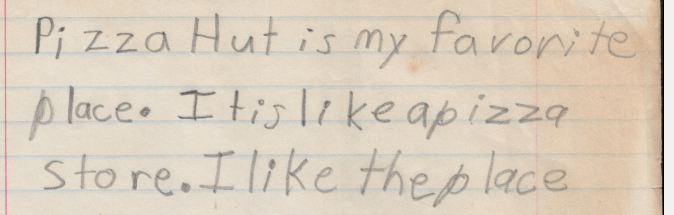 Pizza Hut is my favorite
place. It is like a pizza
store. I like the place